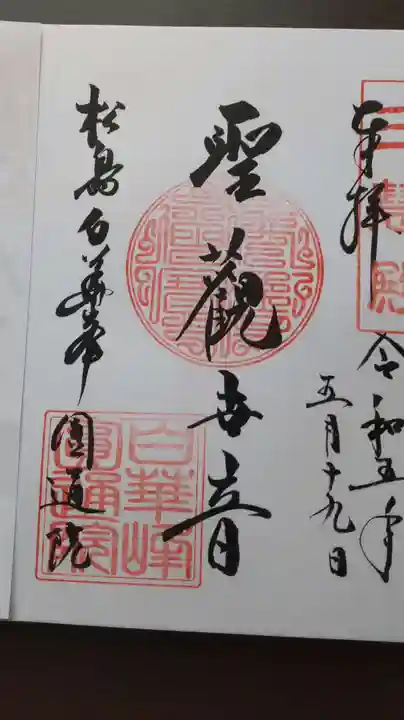 奉拝
令和五年
五月十九日
聖觀世音
松島白華峯
圓通院
白華峰
圓通院